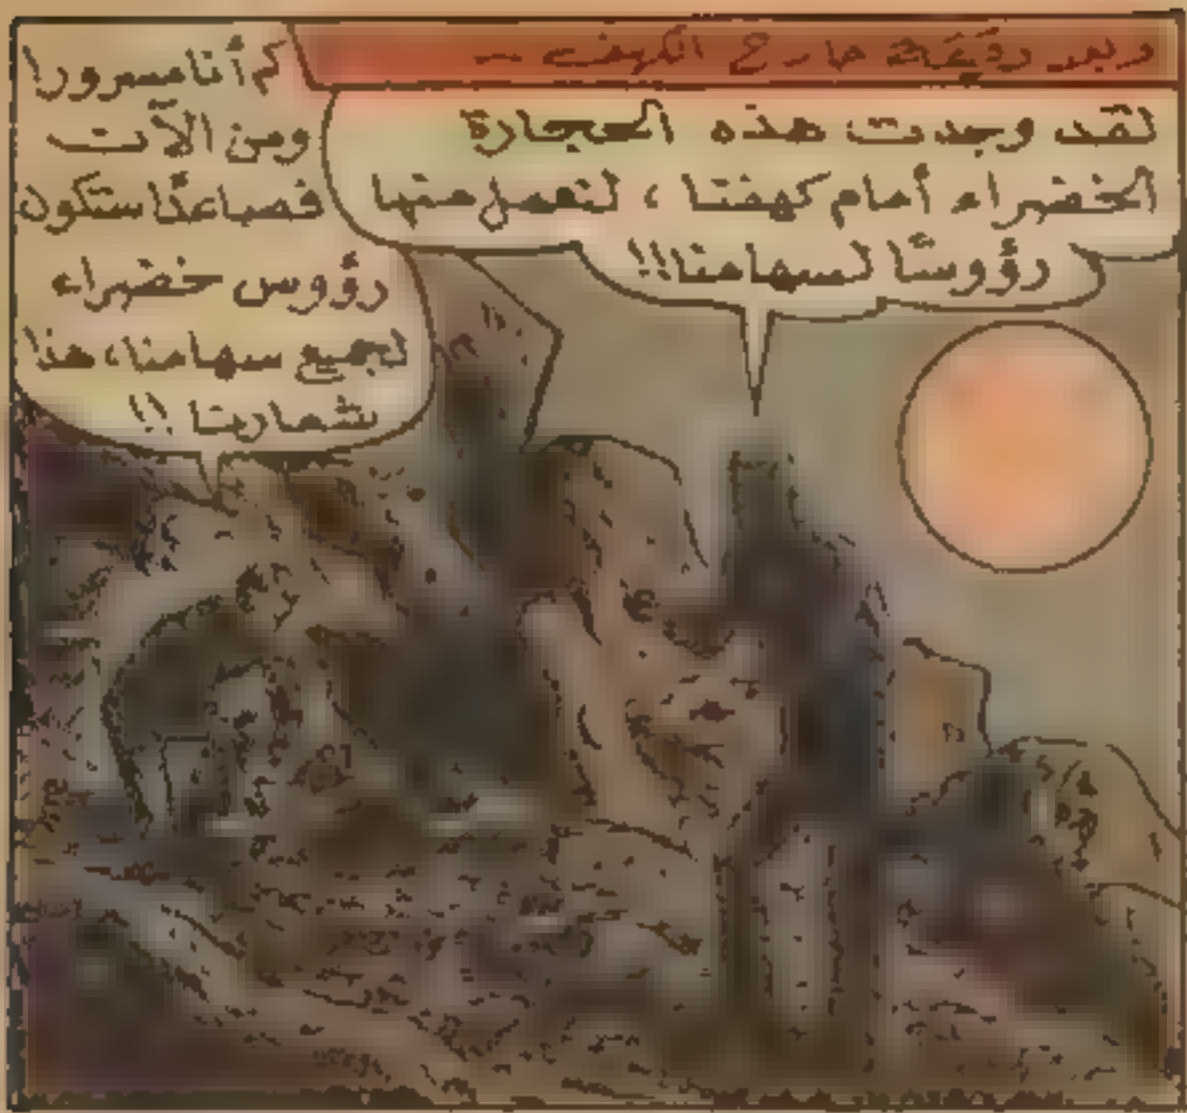 وبعد دقيقة خارج الكهف –
لقد وجدت هذه الحجارة
الخضراء أمام كهفنا ، لنعمل منها
رؤوسًا لسهامنا!!
كم أنا مسرور!
ومن الآن
فصاعدًا ستكون
رؤوس خضراء
لجميع سهامنا، هذا
شعارنا !!